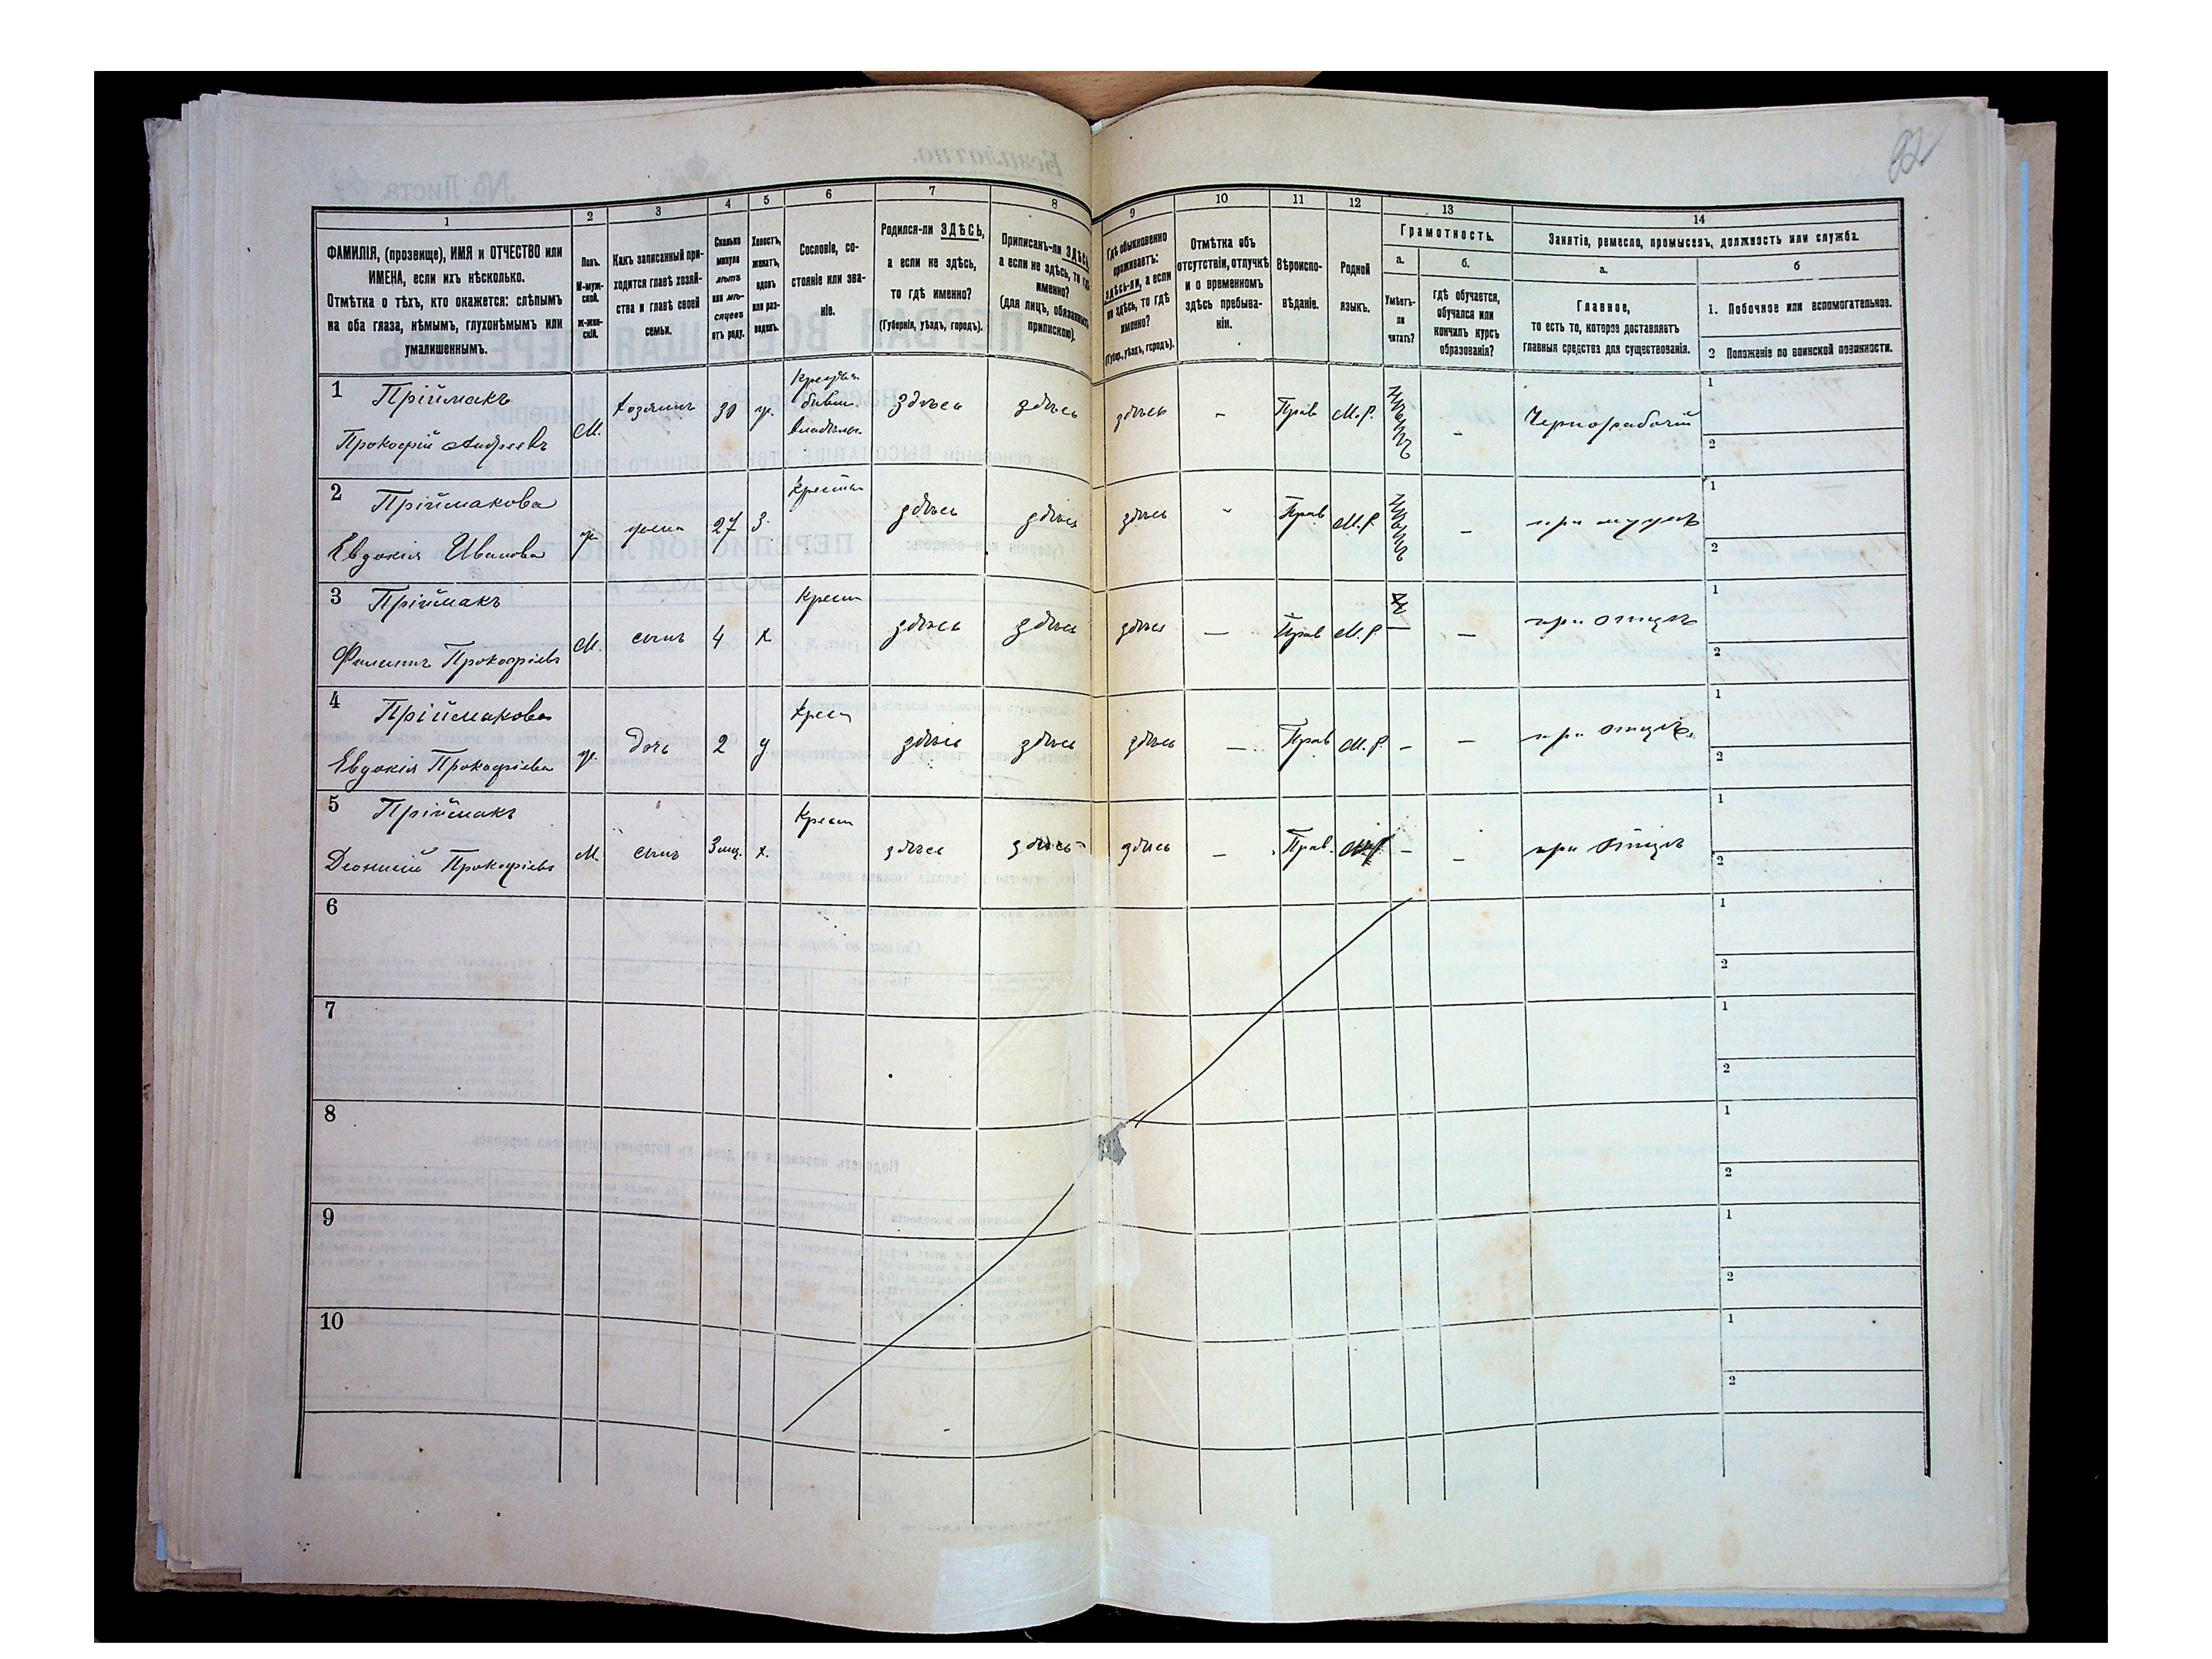 92
1 2 3 4 5 6 7 8 9 10 11 12 13 14
ФАМИЛІЯ, (прозвище), ИМЯ и ОТЧЕСТВО или
ИМЕНА, если ихъ нѣсколько.
Отмѣтка о тѣхъ, кто окажется: слѣпымъ
на оба глаза, нѣмымъ, глухонѣмымъ или
умалишеннымъ.
Полъ.
М-муж-
ской.
Ж-жен-
скій.
Какъ записанный при-
ходится главѣ хозяй-
ства и главѣ своей
семьи.
Сколько
минуло
лѣтъ
или мѣ-
сяцевъ
отъ роду.
Холостъ,
женатъ,
вдовъ
или раз-
веденъ.
Сословіе, со-
стояніе или зва-
ніе.
Родился-ли ЗДѢСЬ,
а если не здѣсь,
то гдѣ именно?
(Губернія, уѣздъ, городъ).
Приписанъ-ли ЗДѢСЬ,
а если не здѣсь, то гдѣ
именно?
(для лицъ, обязанныхъ
припискою).
Гдѣ обыкновенно
проживаетъ:
здѣсь-ли, а если
не здѣсь, то гдѣ
именно?
(Губер., уѣздъ, городъ).
Отмѣтка объ
отсутствіи, отлучкѣ
и о временномъ
здѣсь пребыва-
ніи.
Вѣроиспо-
вѣданіе.
Родной
языкъ.
Грамотность.
а.
Умѣетъ-
ли
читать?
б.
гдѣ обучается,
обучался или
кончилъ курсъ
образованія?
Занятіе, ремесло, промыселъ, должность или служба.
а.
Главное,
то есть то, которое доставляетъ
главныя средства для существованія.
б
1. Побочное или вспомогательное.
2 Положеніе по воинской повинности.
1 Пріймакъ
Прокофій Андреевъ
М. хозяинъ 30 ж. Крестьян. бывш. владѣльч. здѣсь здѣсь здѣсь - Прав М.Р. - Чернорабочій
1
2
2 Пріймакова
Евдокія Иванова
ж. жена 27 З. Крестьян здѣсь здѣсь здѣсь - Прав М.Р. - при мужѣ
1
2
3 Пріймакъ
Филиппъ Прокофіевъ
М. сынъ 4 х Крест здѣсь здѣсь здѣсь — Прав М.Р. — при отцѣ
1
2
4 Пріймакова
Евдокія Прокофіева
ж. дочь 2 д Крест здѣсь здѣсь здѣсь — Прав М.Р. — — при отцѣ.
1
2
5 Пріймакъ
Деонисій Прокофіевъ
М. сынъ 3 мц. х. Крест здѣсь здѣсь здѣсь — Прав. М.Р. — — при отцѣ
1
2
6 1
2
7 1
2
8 1
2
9 1
2
10 1
2